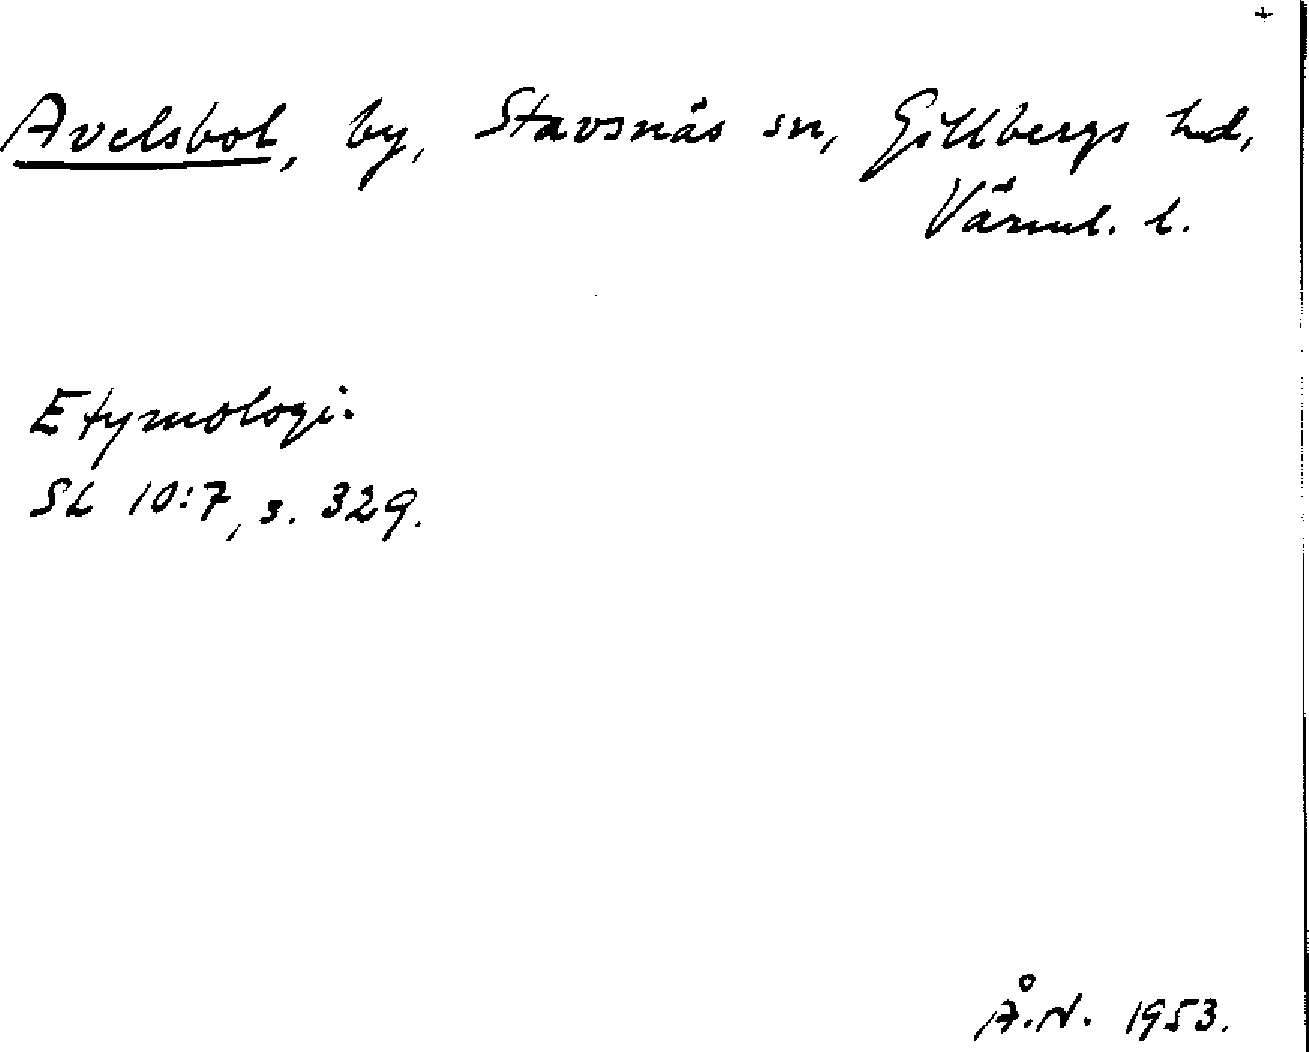 +
Avelsbol, by, Stavsnäs sn, Gillbergs hd,
Värml. l.
Etymologi.
SL 10:7, s. 329.
Å.N. 1953.